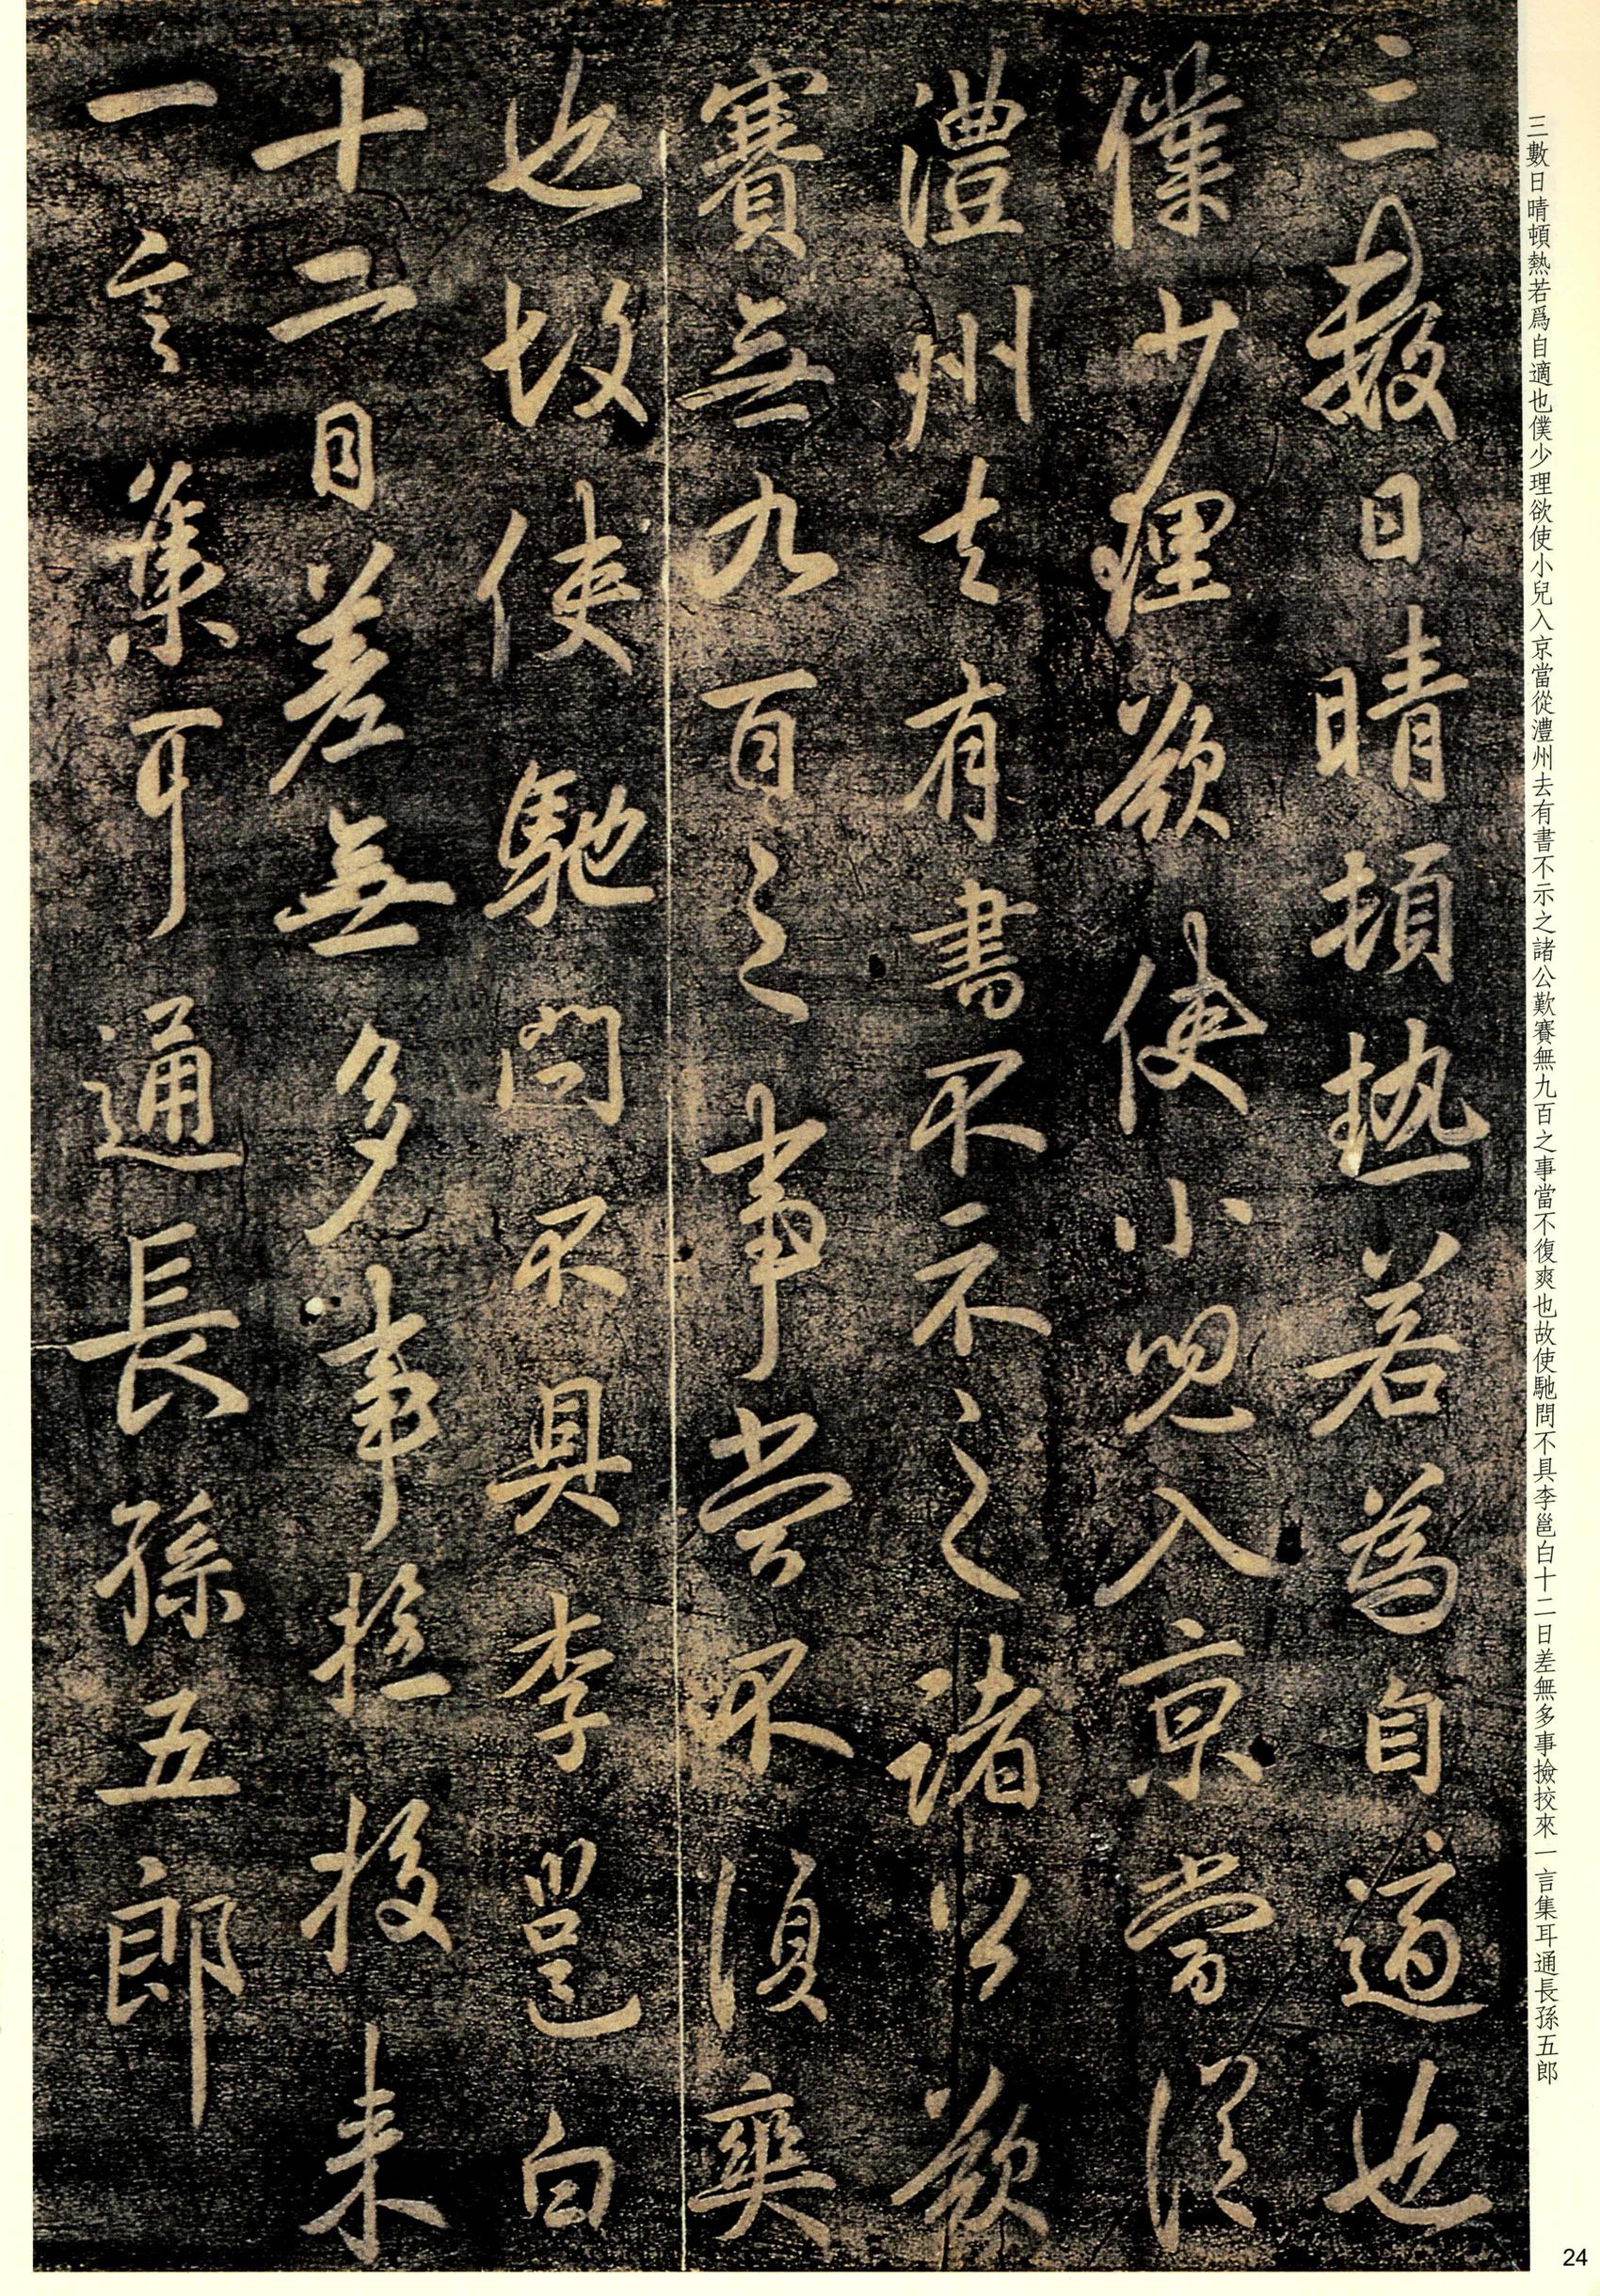 三數日晴頓熱若爲自適也僕少理欲使小兒入京當從澧州去有書不示之諸公歎賽無九百之事當不復爽也故使馳問不具李邕白十二日差無多事撿挍來一言集耳通長孫五郎
三數日晴頓熱若為自適也
僕少理欲使小兒入京當從
澧州去有書不示之諸公欲
賽無九百之事當不復爽
也故使馳問不具李邕白
十二日差無多事撿挍来
一言集耳通長孫五郎
24